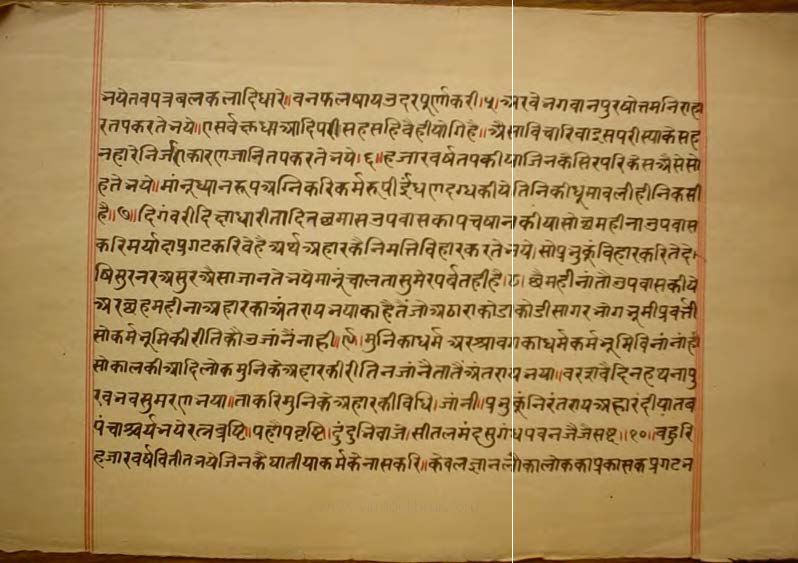 नयेतवपत्रबलकलादिधारे॥वनफलषायउदरपूर्णकरी।५।अरवेनगवानपुरषोत्तमनिराहा
रतपकरतेनये॥एसर्वक्तधाआदिपरीसहसहिवेहीयोगिहै॥अैसाविचारिवाइसपरीस्याकेसह
नहारेनिर्जराकारणजानितपकरतेनये।६॥हजारवर्षतपकीयाजिनकैसिरपरिकेसअैसेसो
हतेनये॥मांनूंध्यानरूपअग्निकरिकर्मरूपीईंधणदग्धकीयेतिनिकीधूमावलीहीनिकसी
है॥७॥दिगंबरीदिक्षाधारीतादिनछमासउपवासकापचषानकीयासोछमहीनाउपवास
करिमर्यादाप्रगटकरिवेहैअर्थअहारकैनिमत्तिविहारकरतेनये।सोप्रनुकूंविहारकरितेदे।
षिसुरनरअसुरअैसाजानतेनयेमानूंचालतासुमेरपर्वतहीहै।८।छैमहीनांतौउपवासकीये
अरछहमहीनाअहारकाअंतरायनयाकाहैतैंजोअठाराकोडाकोडीसागरनोगनूमीप्रवर्त्ती
सोकर्मनूमिकीरीतिकौउजांनैंनाही।९।मुनिकाधर्मअरश्रावगकाधर्मकर्मनूमिविनांनांहीं
सोकालकीआदिलोकमुनिकेअहारकीरीतिनजांनैतातैंअंतरायनया॥वरजावैदिनहयनापु
रवनवसुमरणनया॥ताकरिमुनिकेअहारकीविधि।जांनी॥प्रनुकूंनिरंतरायअहारदीयातब
पंचाश्चर्यनयेरत्नवृष्टि।पहोपवृष्टि।दुंदुनिवाजे।सीतलमंदसुगंधपवनजैजैसष्ट।॥१०॥वहुरि
हजारवर्षवितीतनयेजिनकैघातीयाकर्मकेनासकरि॥केवलज्ञानलोकालोककाप्रकासकप्रगटन